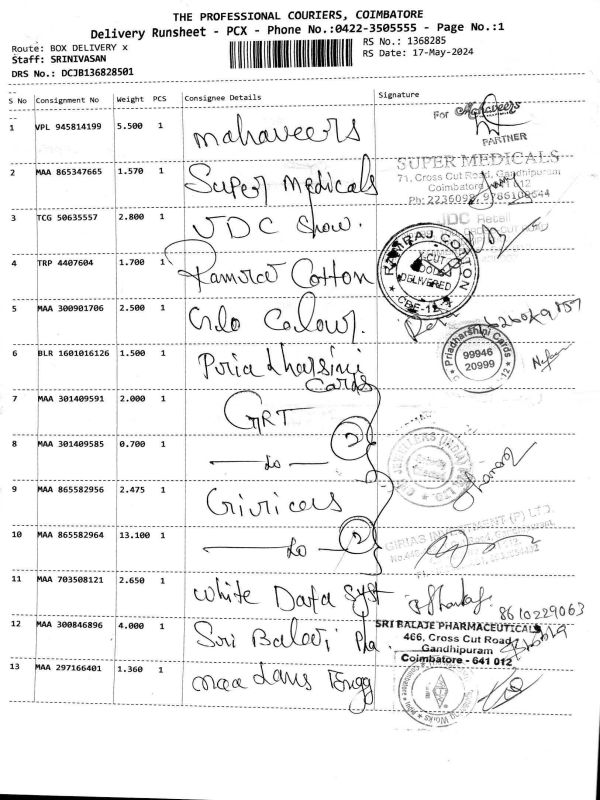 THE PROFESSIONAL COURIERS, COIMBATORE
Delivery Runsheet - PCX - Phone No.:0422-3505555 - Page No.:1
Route: BOX DELIVERY x
Staff: SRINIVASAN
DRS No.: DCJB136828501
RS No.: 1368285
RS Date: 17-May-2024
S No Consignment No Weight PCS Consignee Details Signature
1 VPL 945814199 5.500 1 mahaveers
For Mahaveers
PARTNER
2 MAA 865347665 1.570 1 Super Medicals
SUPER MEDICALS
71, Cross Cut Road, Gandhipuram
Coimbatore
3 TCG 50635557 2.800 1 JDC Show.
JDC Retail
4 TRP 4407604 1.700 1 Ramraj Cotton
RAMRAJ COTTON
X-CUT
GOODS
DELIVERED
CBE-12
5 MAA 300901706 2.500 1 Colour.
6 BLR 1601016126 1.500 1 Priadharsini
Cards
Priadharshini Cards
99946
20999
7 MAA 301409591 2.000 1 GRT
8 MAA 301409585 0.700 1 — do — 2
9 MAA 865582956 2.475 1
10 MAA 865582964 13.100 1 — do — 2
GIRIAS INVESTMENT (P) LTD.
11 MAA 703508121 2.650 1 White Data Syst
8610229063
12 MAA 300846896 4.000 1 Sri Balaji Pha.
SRI BALAJE PHARMACEUTICALS
466, Cross Cut Road
Gandhipuram
Coimbatore - 641 012
13 MAA 297166401 1.360 1 Engg